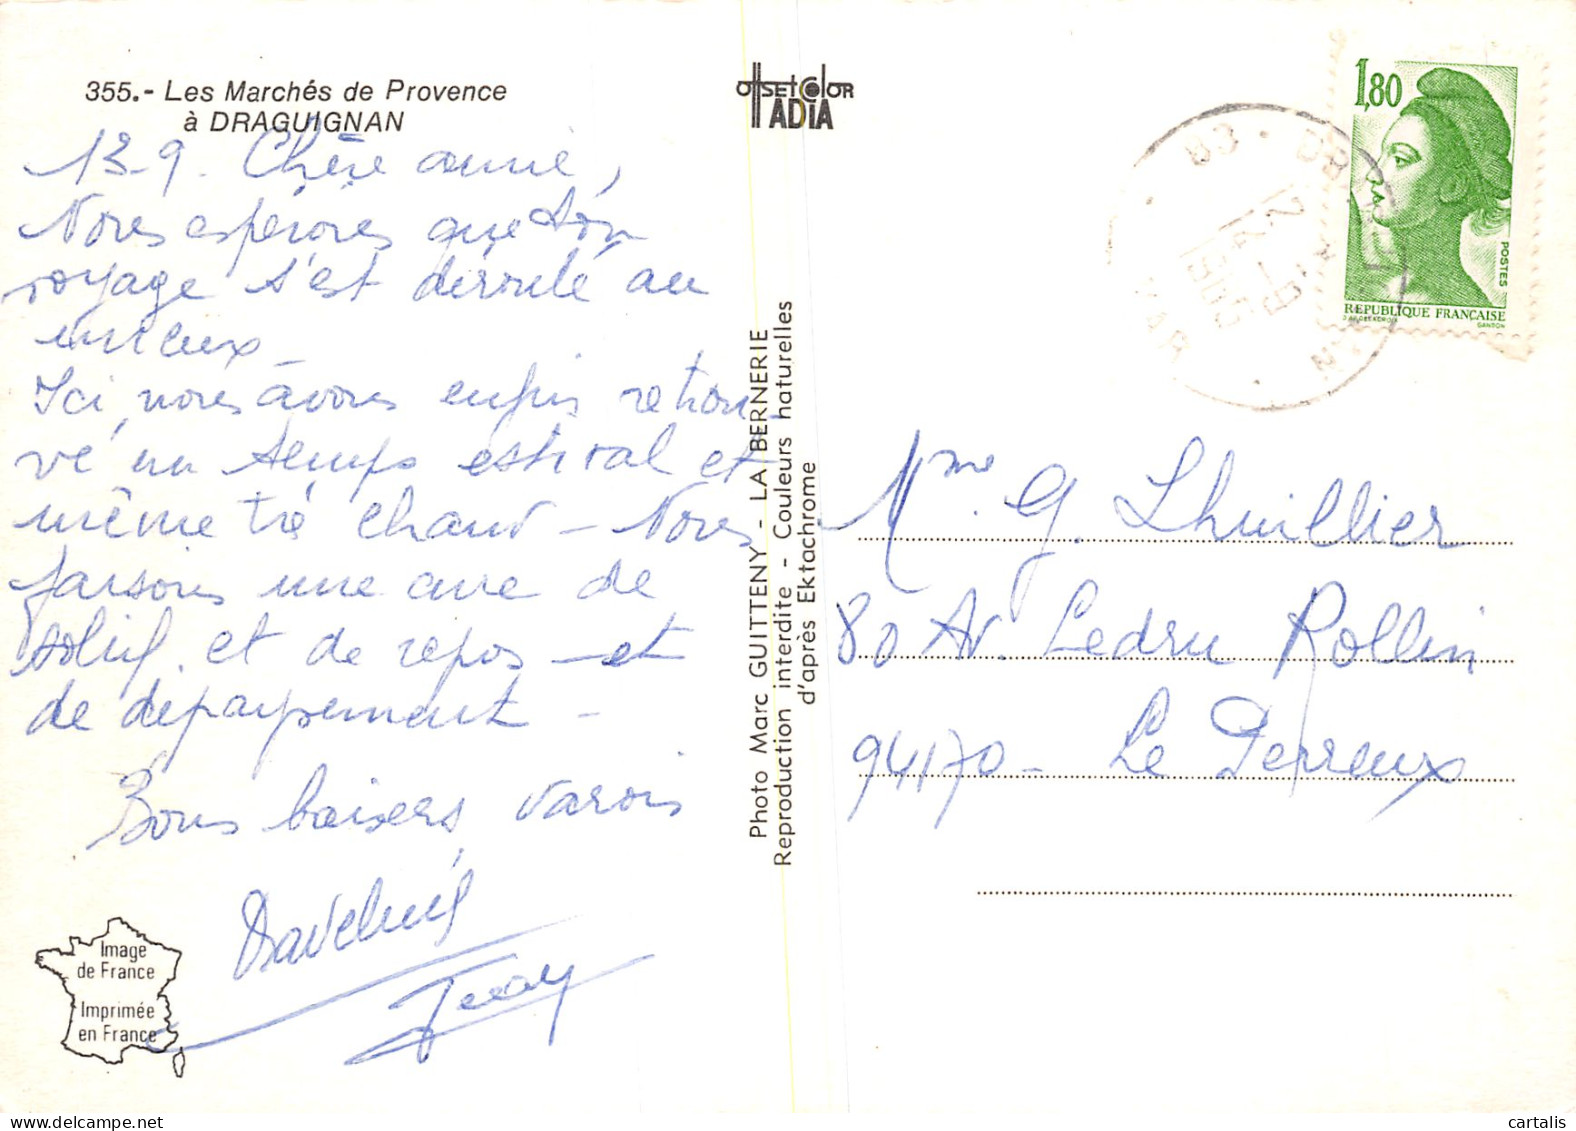 355.- Les Marchés de Provence
à DRAGUIGNAN
13-9. Chère amie,
Nous espérons que ton
voyage s'est déroulé au
mieux -
Ici, nous avons enfin retrou-
vé un temps estival et
même trè chaud - Nous
faisons une cure de
soleil, et de repos - et
de dépaysement -
Bons baisers varois
OFFSET COLOR
ADIA
Photo Marc GUITTENY - LA BERNERIE
Reproduction interdite - Couleurs naturelles
d'après Ektachrome
Image
de France
Imprimée
en France
1,80
POSTES
REPUBLIQUE FRANÇAISE
GANDON
83
VAR
Mme. G. Lhuillier
80 Av. Ledru Rollin
94170 - Le Perreux
cartalis